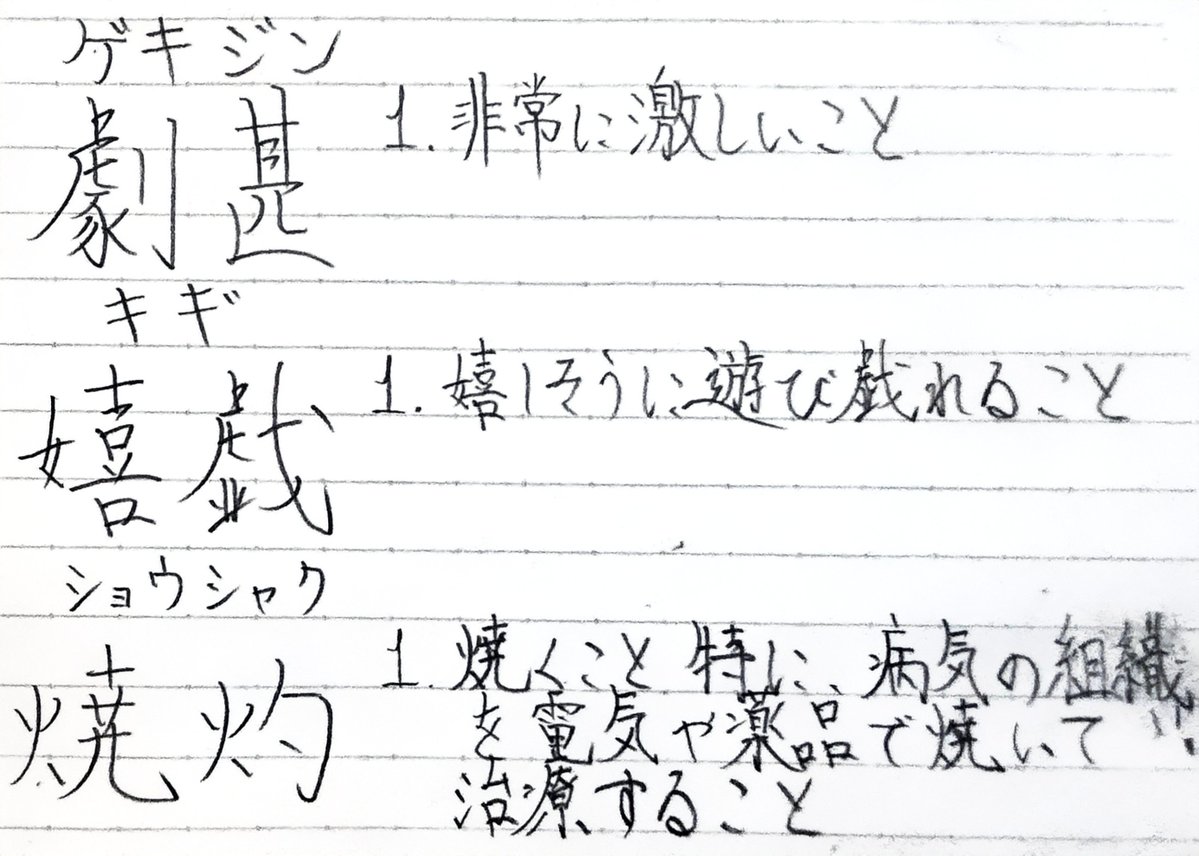 ゲキジン
劇甚 1. 非常に激しいこと
キギ
嬉戯 1. 嬉しそうに遊び戯れること
ショウシャク
焼灼 1. 焼くこと 特に、病気の組織
を電気や薬品で焼いて
治療すること